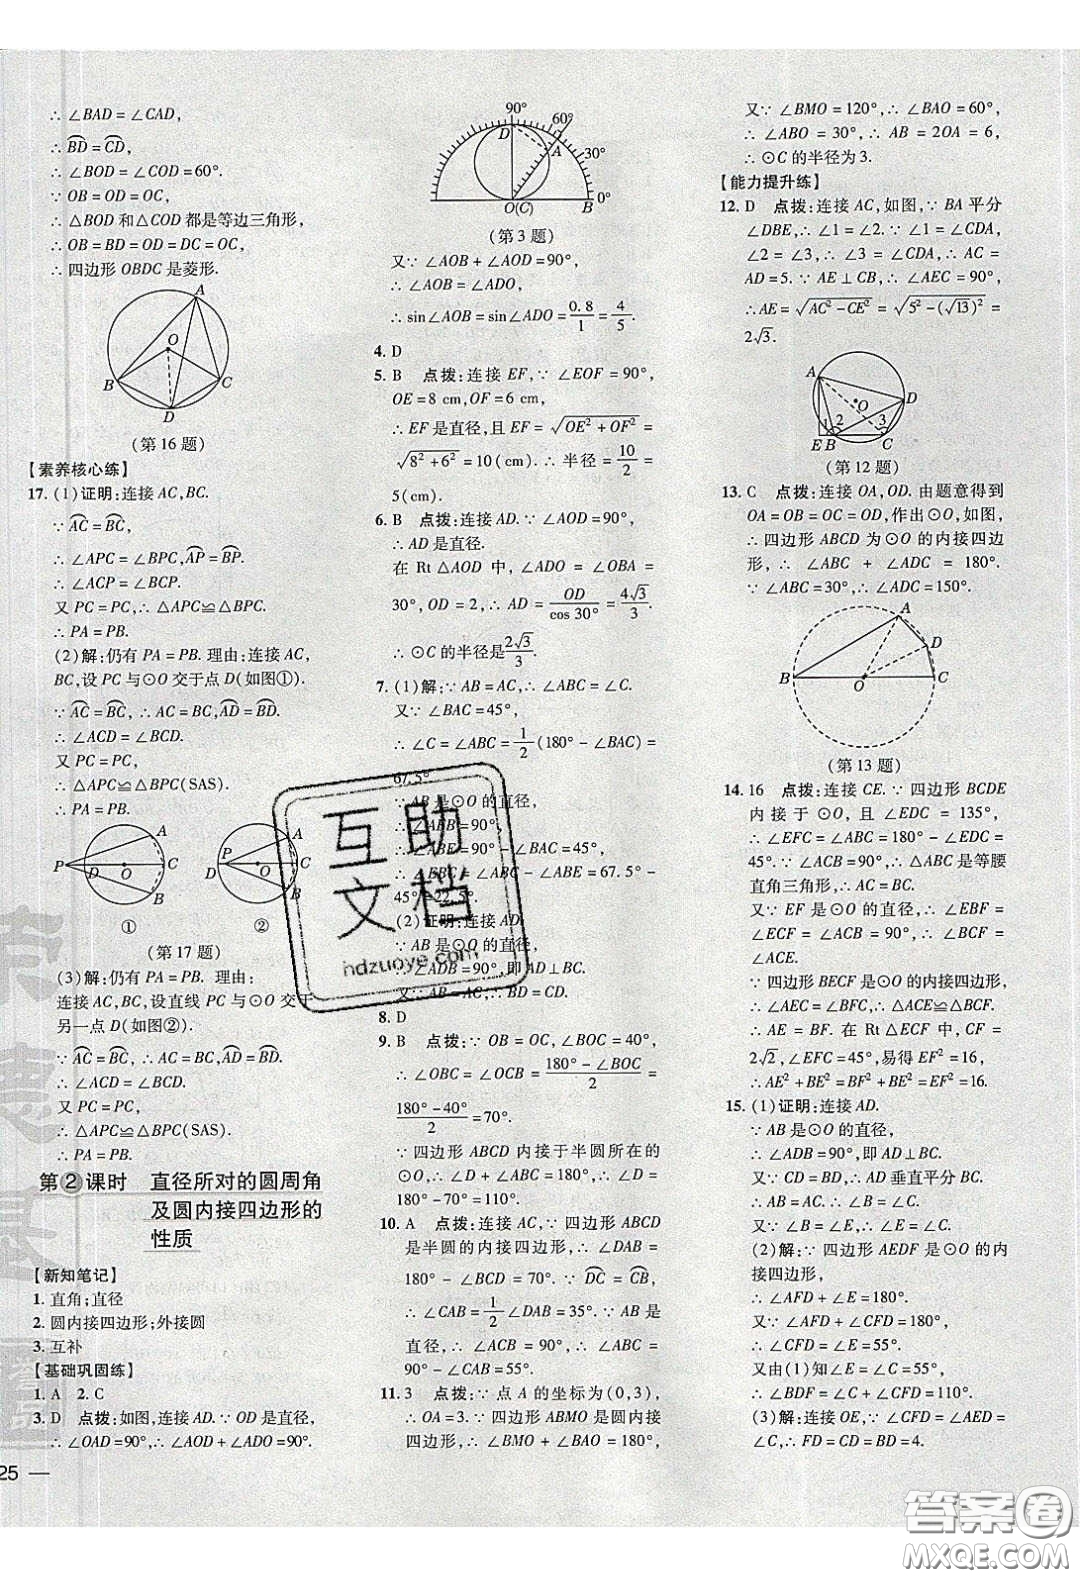 ∴ ∠BAD = ∠CAD,
∴ BD = CD,
∴ ∠BOD = ∠COD = 60°.
∵ OB = OD = OC,
∴ △BOD 和△COD 都是等边三角形,
∴ OB = BD = OD = DC = OC,
∴ 四边形 OBDC 是菱形.
A
O
B
C
D
(第 16 题)
【素养核心练】
17. (1)证明:连接 AC,BC.
∵ AC = BC,
∴ ∠APC = ∠BPC,AP = BP.
∴ ∠ACP = ∠BCP.
又 PC = PC,∴ △APC≌△BPC.
∴ PA = PB.
(2)解:仍有 PA = PB. 理由:连接 AC,
BC,设 PC 与⊙O 交于点 D(如图①).
∵ AC = BC, ∴ AC = BC,AD = BD.
∴ ∠ACD = ∠BCD.
又 PC = PC,
∴ △APC≌△BPC(SAS).
∴ PA = PB.
P D O A C B
①
D P O A C B
②
(第 17 题)
(3)解:仍有 PA = PB. 理由:
连接 AC,BC,设直线 PC 与⊙O 交于
另一点 D(如图②).
∵ AC = BC, ∴ AC = BC,AD = BD.
∴ ∠ACD = ∠BCD.
又 PC = PC,
∴ △APC≌△BPC(SAS).
∴ PA = PB.
第②课时 直径所对的圆周角
及圆内接四边形的
性质
【新知笔记】
1. 直角;直径
2. 圆内接四边形;外接圆
3. 互补
【基础巩固练】
1. A 2. C
3. D 点拨:如图,连接 AD. ∵ OD 是直径,
∴ ∠OAD = 90°,∴ ∠AOD + ∠ADO = 90°.
25 —
90°
60°
30°
0°
D
A
O(C)
B
(第 3 题)
又∵ ∠AOB + ∠AOD = 90°,
∴ ∠AOB = ∠ADO,
∴ sin∠AOB = sin∠ADO = 0.8/1 = 4/5.
4. D
5. B 点拨:连接 EF,∵ ∠EOF = 90°,
OE = 8 cm,OF = 6 cm,
∴ EF 是直径,且 EF = √(OE² + OF²) =
√(8² + 6²) = 10(cm). ∴ 半径 = 10/2 =
5(cm).
6. B 点拨:连接 AD. ∵ ∠AOD = 90°,
∴ AD 是直径.
在 Rt △AOD 中, ∠ADO = ∠OBA =
30°,OD = 2,∴ AD = OD/cos 30° = 4√3/3.
∴ ⊙C 的半径是2√3/3.
7. (1)解:∵ AB = AC,∴ ∠ABC = ∠C.
又∵ ∠BAC = 45°,
∴ ∠C = ∠ABC = 1/2(180° - 45°) =
67.5°.
∵ AB 是⊙O 的直径,
∴ ∠AEB = 90°,
∴ ∠ABE = ∠BAC = 45°,
∴ ∠EBC = ∠ABC - ∠ABE = 67.5° -
45° = 22.5°.
(2)证明:连接 AD.
∵ AB 是⊙O 的直径,
∴ ∠ADB = 90°,即 AD⊥BC.
又∵ AB = AC,∴ BD = CD.
8. D
9. B 点拨:∵ OB = OC,∠BOC = 40°,
∴ ∠OBC = ∠OCB = (180° - ∠BOC)/2 =
(180° - 40°)/2 = 70°.
∵ 四边形 ABCD 内接于半圆所在的
⊙O,
∴ ∠D = 180° - ∠OBC = 110°.
10. A 点拨:连接 AC,∵ 四边形 ABCD
是半圆的内接四边形,∴ ∠DAB =
180° - ∠DCB = 70°. ∵ DC = CB,
∴ ∠CAB = 1/2∠DAB = 35°. ∵ AB 是
直径,∴ ∠ACB = 90°,∴ ∠ABC =
90° - ∠CAB = 55°.
11. 3 点拨:∵ 点 A 的坐标为(0,3),
∴ OA = 3. ∵ 四边形 ABMO 是圆内接
四边形,∴ ∠BMO + ∠BAO = 180°,
又∵ ∠BMO = 120°,∴ ∠BAO = 60°,
∴ ∠ABO = 30°,∴ AB = 2OA = 6,
∴ ⊙C 的半径为 3.
【能力提升练】
12. D 点拨:连接 AC,如图,∵ BA 平分
∠DBE,∴ ∠1 = ∠2. ∵ ∠1 = ∠CDA,
∠2 = ∠3,∴ ∠3 = ∠CDA,∴ AC =
AD = 5. ∵ AE⊥CB,∴ ∠AEC = 90°,
∴ AE = √(AC² - CE²) = √(5² - (√13)²) =
2√3.
A
D
O
1 2 3
E B C
(第 12 题)
13. C 点拨:连接 OA,OD. 由题意得到
OA = OB = OC = OD,作出⊙O,如图,
∴ 四边形 ABCD 为⊙O 的内接四边
形,∴ ∠ABC + ∠ADC = 180°.
∵ ∠ABC = 30°,∴ ∠ADC = 150°.
A
D
B
O
C
(第 13 题)
14. 16 点拨:连接 CE. ∵ 四边形 BCDE
内接于⊙O,且∠EDC = 135°,
∴ ∠EFC = ∠ABC = 180° - ∠EDC =
45°. ∵ ∠ACB = 90°,∴ △ABC 是等腰
直角三角形,∴ AC = BC.
又∵ EF 是⊙O 的直径,∴ ∠EBF =
∠ECF = ∠ACB = 90°, ∴ ∠BCF =
∠ACE.
∵ 四边形 BECF 是⊙O 的内接四边形,
∴ ∠AEC = ∠BFC,∴ △ACE≌△BCF.
∴ AE = BF. 在 Rt △ECF 中, CF =
2√2,∠EFC = 45°,易得 EF² = 16,
∴ AE² + BE² = BF² + BE² = EF² = 16.
15. (1)证明:连接 AD.
∵ AB 是⊙O 的直径,
∴ ∠ADB = 90°,即 AD⊥BC.
又∵ DC = BD,∴ AD 垂直平分 BC.
∴ AB = AC. ∴ ∠B = ∠C.
又∵ ∠B = ∠E,∴ ∠E = ∠C.
(2)解:∵ 四边形 AEDF 是⊙O 的内
接四边形,
∴ ∠AFD + ∠E = 180°.
又∵ ∠AFD + ∠CFD = 180°,
∴ ∠CFD = ∠E = 55°.
又由(1)知∠E = ∠C = 55°,
∴ ∠BDF = ∠C + ∠CFD = 110°.
(3)解:连接 OE,∵ ∠CFD = ∠AED =
∠C,∴ FD = CD = BD = 4.
互助
文档
hdzuoye.com
答案圈
MXQE.COM